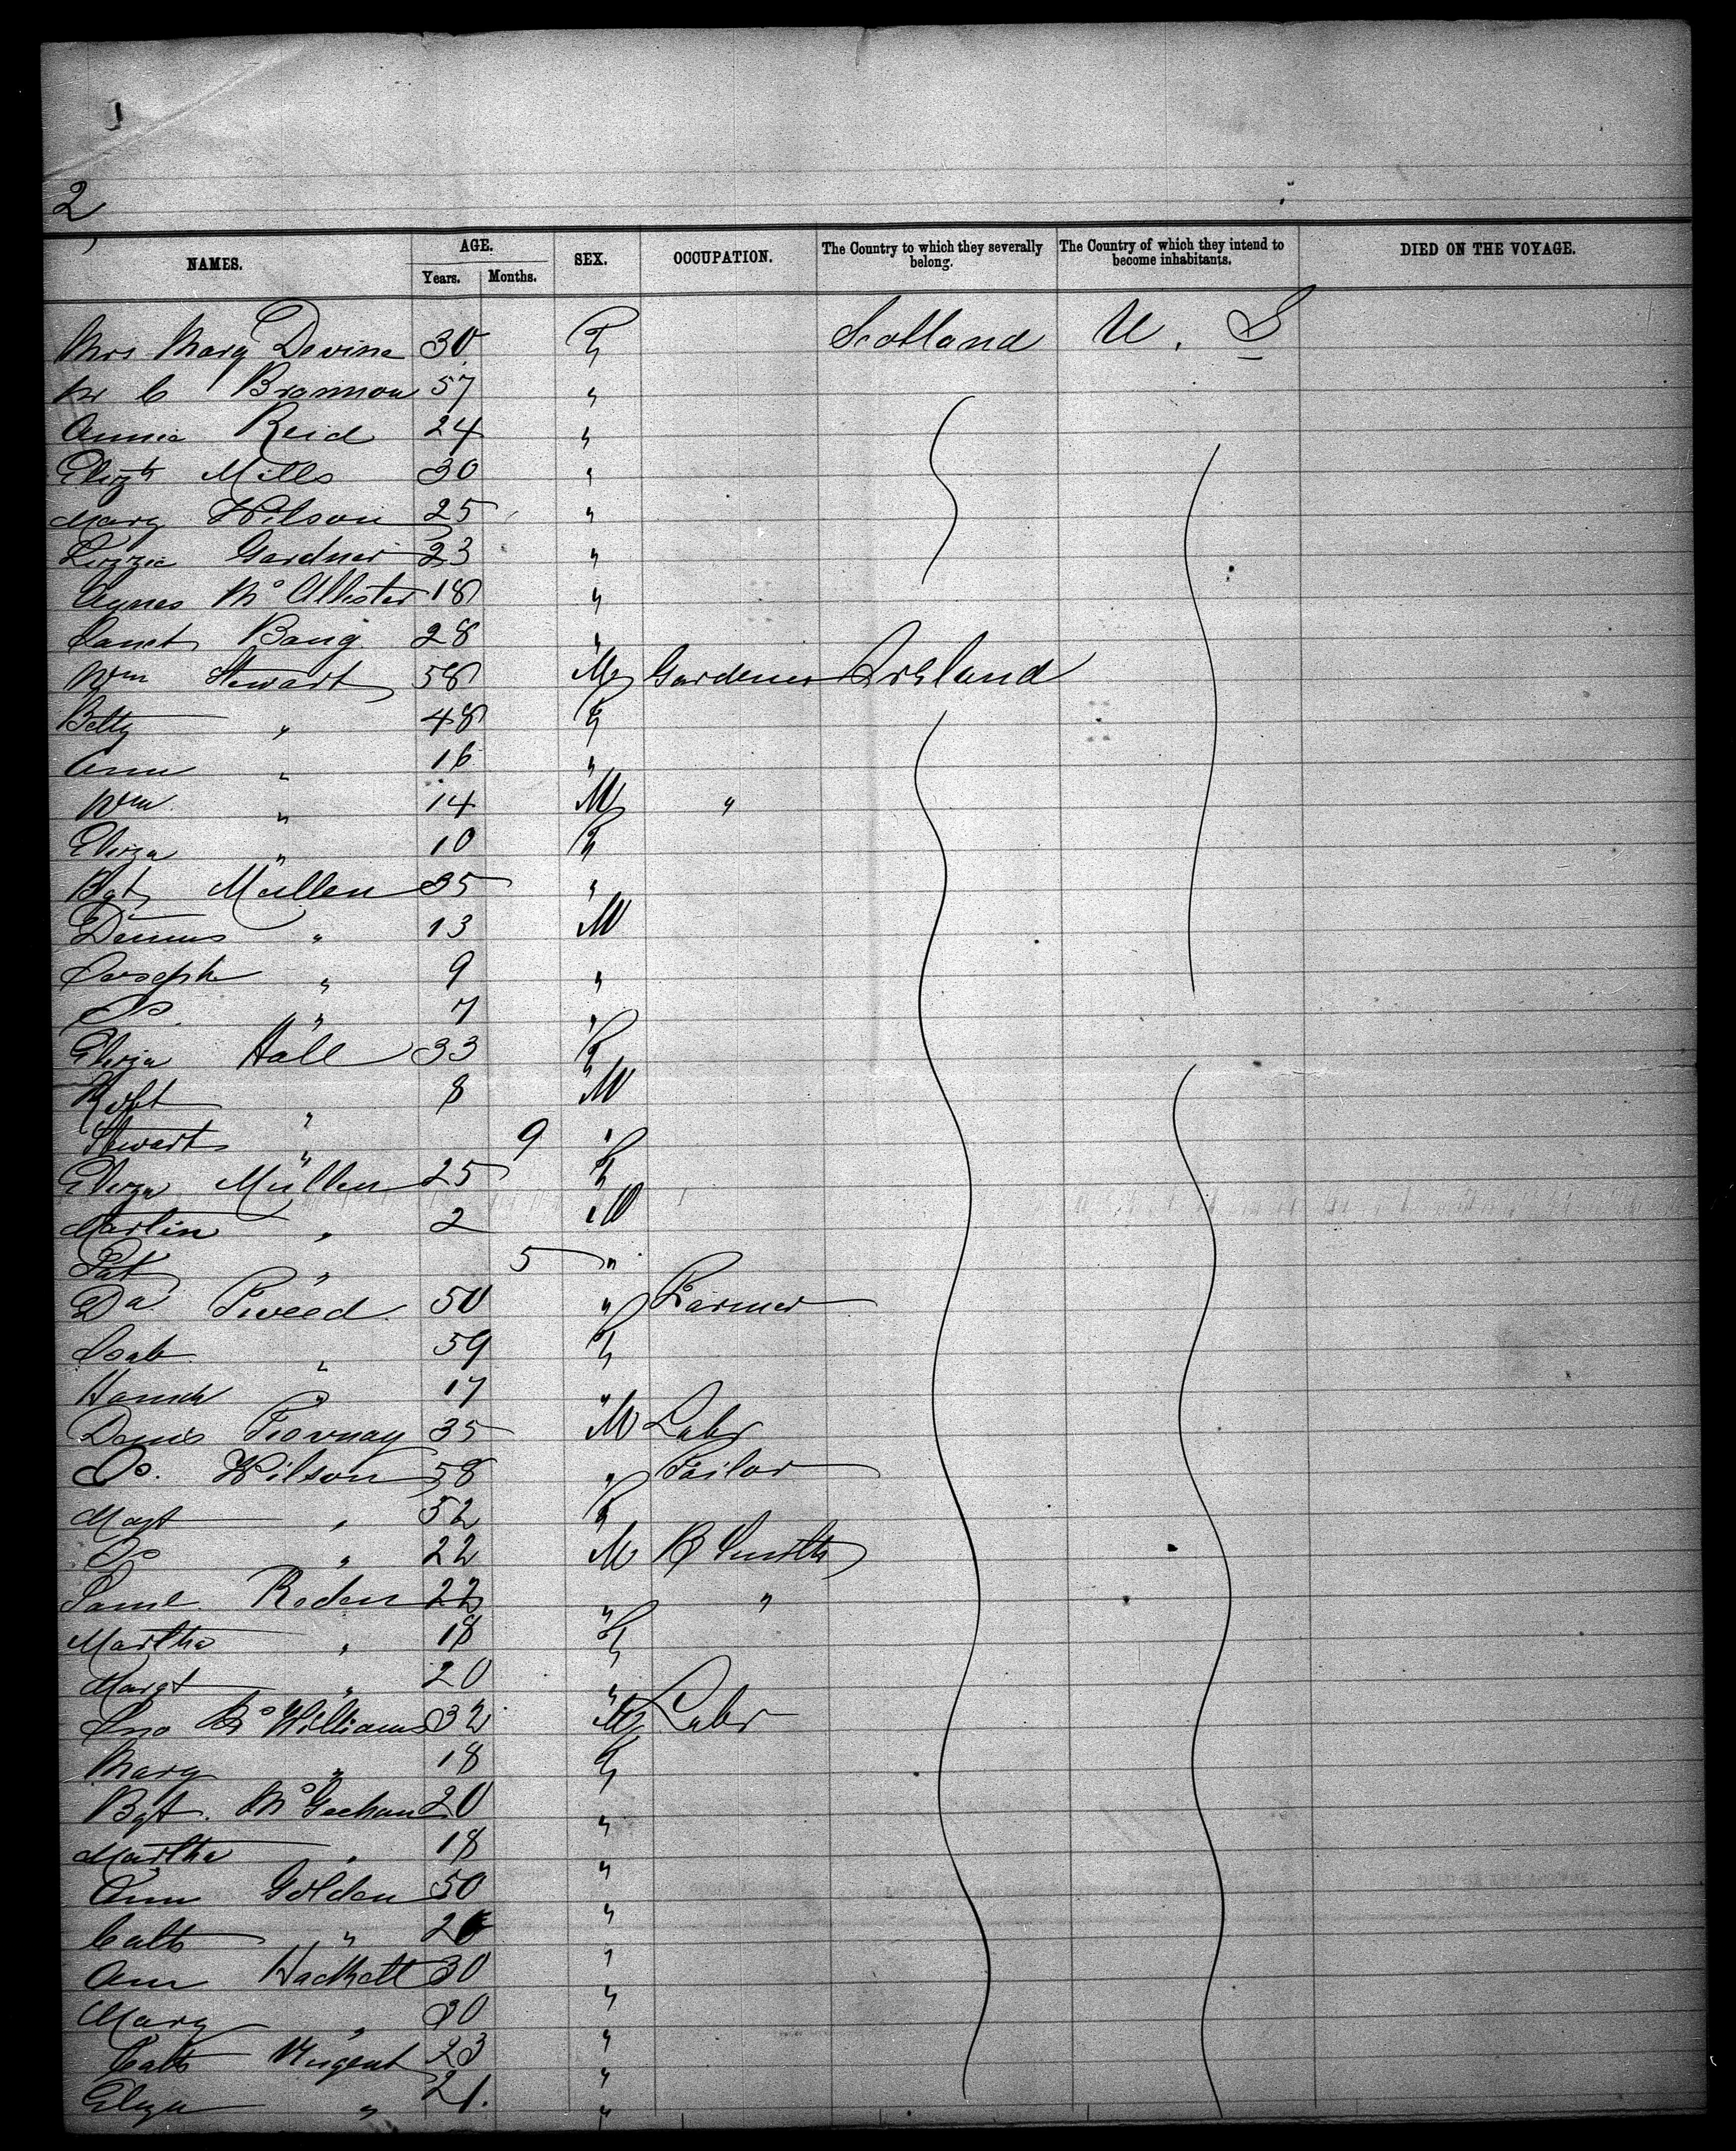 2
NAMES. AGE. Years. Months. SEX. OCCUPATION. The Country to which they severally belong. The Country of which they intend to become inhabitants. DIED ON THE VOYAGE.
Mrs Mary Devine 30 F Scotland U. S
C Brannon 57 "
Annie Reid 24 "
Elizth Mills 30 "
Mary Wilson 25 "
Lizzie Gardner 23 "
Agnes McAllister 18 "
Janet 28 "
Wm Stewart 58 M Gardener Ireland
Betty " 48 F
Ann " 16 "
Wm " 14 M "
Eliza " 10 F
Bgt Mullen 35 "
Dennis " 13 M
Joseph " 9 "
Js " 7 "
Eliza Hall 33 F
Robt " 8 M
Stewart " 9 "
Eliza Mullen 25 F
Martin " 2 M
Pat " 5 "
Da Tweed 50 " Farmer
Isab " 59 F
Hannah " 17 "
Denis 35 M Labr
Js. Wilson 58 " Tailor
Magt " 52 F
Js " 22 M B Smith
Saml Roden 22 " "
Martha " 18 F
Margt " 20 "
Jno McWilliams 32 M Labr
Mary " 18 F
Bgt. McGeehan 20 "
Martha " 18 "
Ann Golden 50 "
Cath " "
Ann Hackett 30 "
Mary " 30 "
Cath Nugent 23 "
Eliza " 21. "